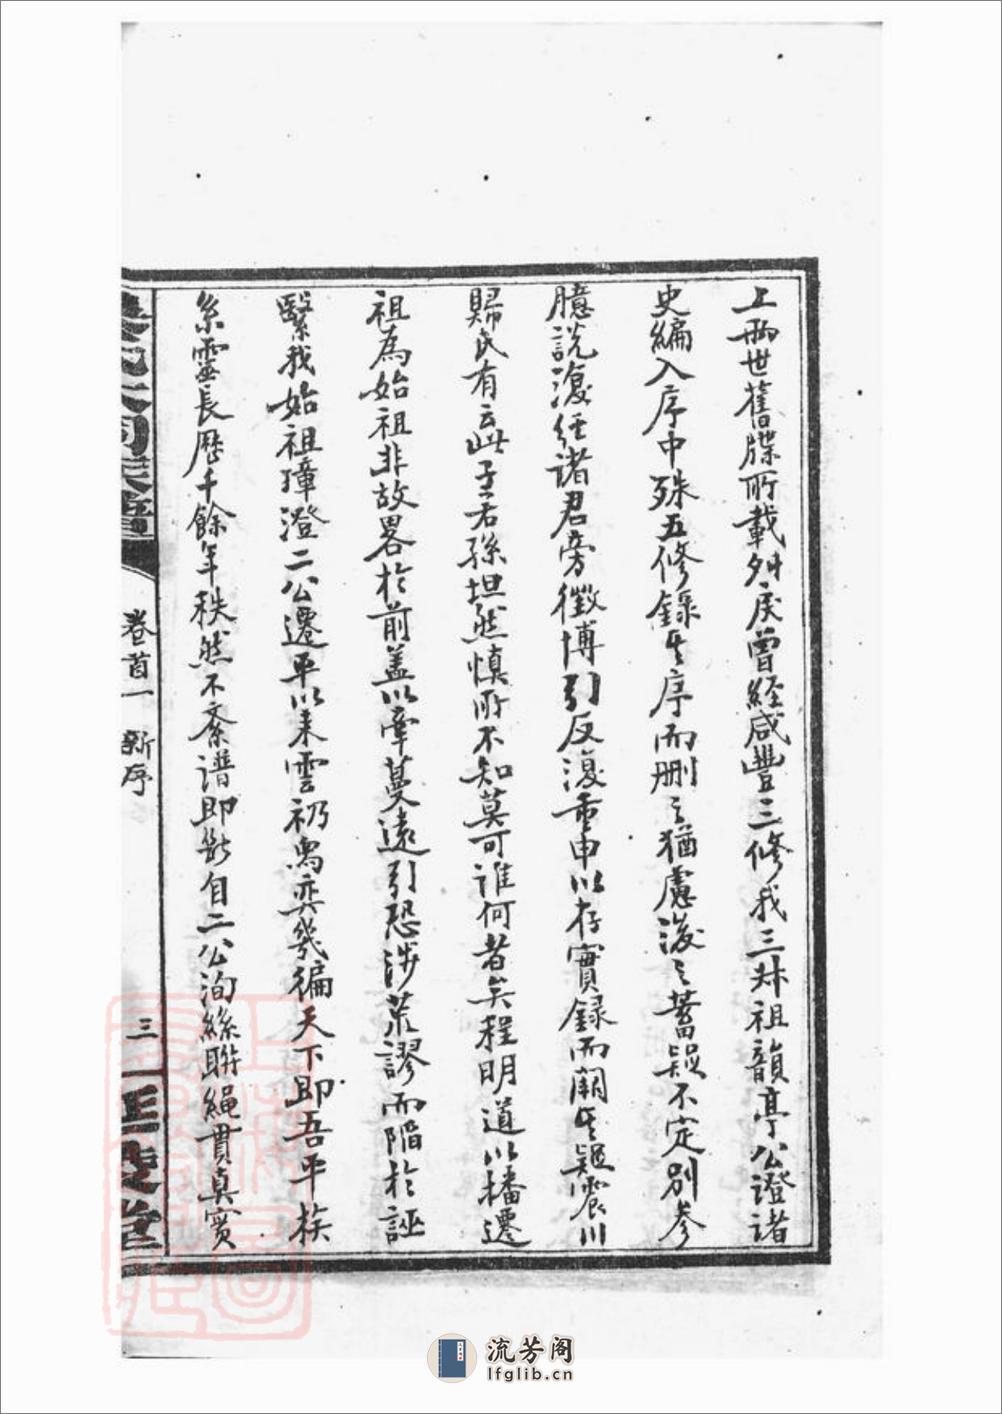 上兩世舊牒所載列戾曾經咸豐三修我三叔祖韻亭公證諸
史編入序中殊五修錄其序而删之猶慮後之蓄疑不定別參
臆說復経诸君旁徵博引反復重申以存實録而闕其疑震川
歸氏有云此子若孫坦然慎所不知莫可谁何者矣程明道以播遷
祖為始祖非故畧於前盖以牽蔓遠引恐涉荒謬而陥於誣
繄我始祖璋澄二公遷平以来雲礽奕㡬徧天下即吾平族
系靈長歷千餘年秩然不紊谱即断自二公洵絲聨繩貫真實
卷首一 新序
三
流芳阁
lfglib.cn